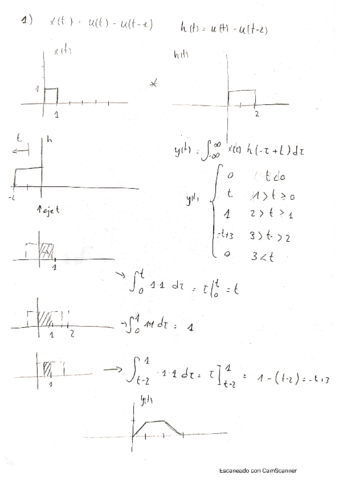 1) x(t) = u(t) - u(t-1) h(t) = u(t) - u(t-2)
x(t) h(t)
1 *
1 2
t h y(t) = ∫_{-∞}^{∞} x(τ) h(-τ+t) dτ
-2 y(t) { 0 t<0
↑ eje t t 1>t≥0
1 2>t>1
-t+3 3>t>2
0 3<t
1
→ ∫_0^t 1·1 dτ = τ|_0^t = t
1 2 → ∫_0^1 1·1 dτ = 1
1 → ∫_{t-2}^1 1·1 dτ = τ]_{t-2}^1 = 1-(t-2) = -t+3
y(t)
Escaneado con CamScanner